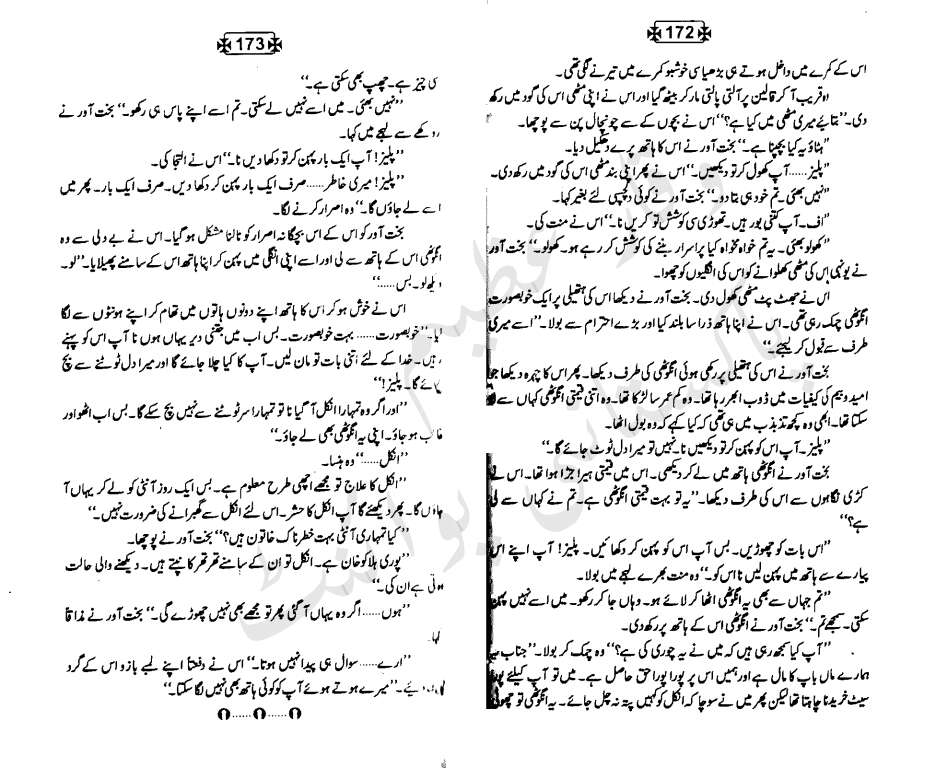 172
اس کے کمرے میں داخل ہوتے ہی بڑھیا سی خوشبو کمرے میں تیرنے لگی تھی۔
وہ قریب آ کر قالین پر آلتی پالتی مار کر بیٹھ گیا اور اس نے اپنی مٹھی اس کی گود میں رکھ
دی۔ ”بتایئے میری مٹھی میں کیا ہے؟“ اس نے بچوں کے سے چونچال پن سے پوچھا۔
”ہٹاؤ یہ کیا بچپنا ہے۔“ بخت آور نے اس کا ہاتھ پرے دھکیل دیا۔
”پلیز......آپ کھول کر تو دیکھیں۔“ اس نے پھر اپنی بند مٹھی اس کی گود میں رکھ دی۔
”نہیں بھئی۔ تم خود ہی بتا دو۔“ بخت آور نے کوئی دلچسپی لئے بغیر کہا۔
”اف۔ آپ کتنی بور ہیں۔ تھوڑی سی کوشش تو کریں نا۔“ اس نے منت کی۔
”کھولو بھئی۔ یہ تم خواہ مخواہ کیا پراسرار بننے کی کوشش کر رہے ہو۔ کھولو۔“ بخت آور
نے یونہی اس کی مٹھی کھلوانے کو اس کی انگلیوں کو چھوا۔
اس نے جھٹ پٹ مٹھی کھول دی۔ بخت آور نے دیکھا اس کی ہتھیلی پر ایک خوبصورت
انگوٹھی چمک رہی تھی۔ اس نے اپنا ہاتھ ذرا سا بلند کیا اور بڑے احترام سے بولا۔ ”اسے میری
طرف سے قبول کر لیجئے۔“
بخت آور نے اس کی ہتھیلی پر رکھی ہوئی انگوٹھی کی طرف دیکھا۔ پھر اس کا چہرہ دیکھا جو
امید و بیم کی کیفیات میں ڈوب ابھر رہا تھا۔ وہ کم عمر سا لڑکا تھا۔ وہ اتنی قیمتی انگوٹھی کہاں سے لے
سکتا تھا۔ ابھی وہ کچھ تذبذب میں ہی تھی کہ کیا کہے کہ وہ بول اٹھا۔
”پلیز۔ آپ اس کو پہن کر تو دیکھیں نا۔ نہیں تو میرا دل ٹوٹ جائے گا۔“
بخت آور نے انگوٹھی ہاتھ میں لے کر دیکھی۔ اس میں قیمتی ہیرا جڑا ہوا تھا۔ اس نے
کڑی نگاہوں سے اس کی طرف دیکھا۔ ”یہ تو بہت قیمتی انگوٹھی ہے۔ تم نے کہاں سے لی
ہے؟“
”اس بات کو چھوڑیں۔ بس آپ اس کو پہن کر دکھائیں۔ پلیز! آپ اپنے اس
پیارے سے ہاتھ میں پہن لیں نا اس کو۔“ وہ منت بھرے لہجے میں بولا۔
”تم جہاں سے بھی یہ انگوٹھی اٹھا کر لائے ہو۔ وہاں جا کر رکھو۔ میں اسے نہیں پہن
سکتی۔ سمجھے تم۔“ بخت آور نے انگوٹھی اس کے ہاتھ پر رکھ دی۔
”آپ کیا سمجھ رہی ہیں کہ میں نے یہ چوری کی ہے؟“ وہ چمک کر بولا۔ ”جناب یہ
ہمارے ماں باپ کا مال ہے اور ہمیں اس پر پورا پورا حق حاصل ہے۔ میں تو آپ کیلئے پورا
سیٹ خریدنا چاہتا تھا لیکن پھر میں نے سوچا کہ انکل کو کہیں پتہ نہ چل جائے۔ یہ انگوٹھی تو چھوٹی
173
سی چیز ہے۔ چھپ بھی سکتی ہے۔“
”نہیں بھئی۔ میں اسے نہیں لے سکتی۔ تم اسے اپنے پاس ہی رکھو۔“ بخت آور نے
روکھے سے لہجے میں کہا۔
”پلیز! آپ ایک بار پہن کر تو دکھا دیں نا۔“ اس نے التجا کی۔
”پلیز! میری خاطر......صرف ایک بار پہن کر دکھا دیں۔ صرف ایک بار۔ پھر میں
اسے لے جاؤں گا۔“ وہ اصرار کرنے لگا۔
بخت آور کو اس کے اس بچگانہ اصرار کو ٹالنا مشکل ہو گیا۔ اس نے بے دلی سے وہ
انگوٹھی اس کے ہاتھ سے لی اور اسے اپنی انگلی میں پہن کر اپنا ہاتھ اس کے سامنے پھیلایا۔ ”لو۔
دیکھ لو۔ بس......“
اس نے خوش ہو کر اس کا ہاتھ اپنے دونوں ہاتوں میں تھام کر اپنے ہونٹوں سے لگا
لیا۔ ”خوبصورت...... بہت خوبصورت۔ بس اب میں جتنی دیر یہاں ہوں نا آپ اس کو پہنے
رہیں۔ خدا کے لئے اتنی بات تو مان لیں۔ آپ کا کیا چلا جائے گا اور میرا دل ٹوٹنے سے بچ
جائے گا۔ پلیز!“
”اور اگر وہ تمہارا انکل آ گیا نا تو تمہارا سر ٹوٹنے سے نہیں بچ سکے گا۔ بس اب اٹھو اور
غائب ہو جاؤ۔ اپنی یہ انگوٹھی بھی لے جاؤ۔“
”انکل......“ وہ ہنسا۔
”انکل کا علاج تو مجھے اچھی طرح معلوم ہے۔ بس ایک روز آنٹی کو لے کر یہاں آ
جاؤں گا۔ پھر دیکھئے گا آپ انکل کا حشر۔ اس لئے انکل سے گھبرانے کی ضرورت نہیں۔“
”کیا تمہاری آنٹی بہت خطرناک خاتون ہیں؟“ بخت آور نے پوچھا۔
”پوری ہلاکو خان ہے۔ انکل تو ان کے سامنے تھر تھر کانپتے ہیں۔ دیکھنے والی حالت
ہوتی ہے ان کی۔“
”ہوں......اگر وہ یہاں آ گئی پھر تو مجھے بھی نہیں چھوڑے گی۔“ بخت آور نے مذاقا
کہا۔
”ارے...... سوال ہی پیدا نہیں ہوتا۔“ اس نے دفعتا اپنے لمبے بازو اس کے گرد
”میرے ہوتے ہوئے آپ کو کوئی ہاتھ بھی نہیں لگا سکتا۔“